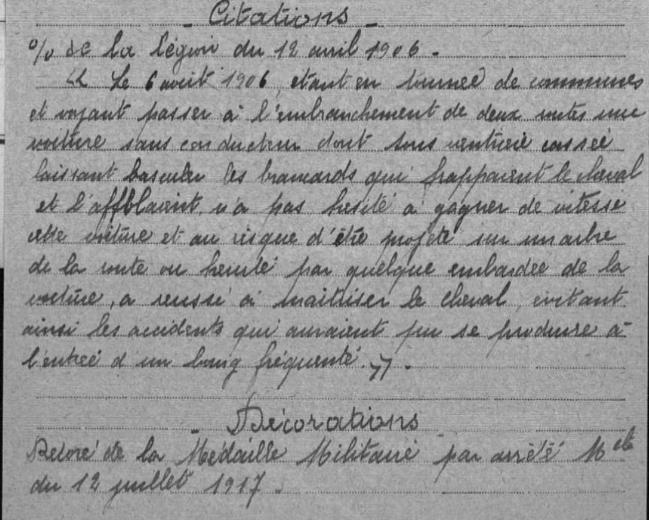 - Citations -
o/o de la légion du 12 avril 1906 -
"Le 6 août 1906, étant en tournée de communes
et voyant passer à l'embranchement de deux routes une
voiture sans conducteur dont sous ventrière cassée
laissant basculer les brancards qui frappaient le cheval
et l'affolaient, n'a pas hésité à gagner de vitesse
cette voiture et au risque d'être projeté sur un arbre
de la route ou heurté par quelque embardée de la
voiture, a réussi à maîtriser le cheval, évitant
ainsi les accidents qui auraient pu se produire à
l'entrée d'un bourg fréquenté." -
Décorations
Décoré de la Médaille Militaire par arrêté Mel
du 12 juillet 1917.